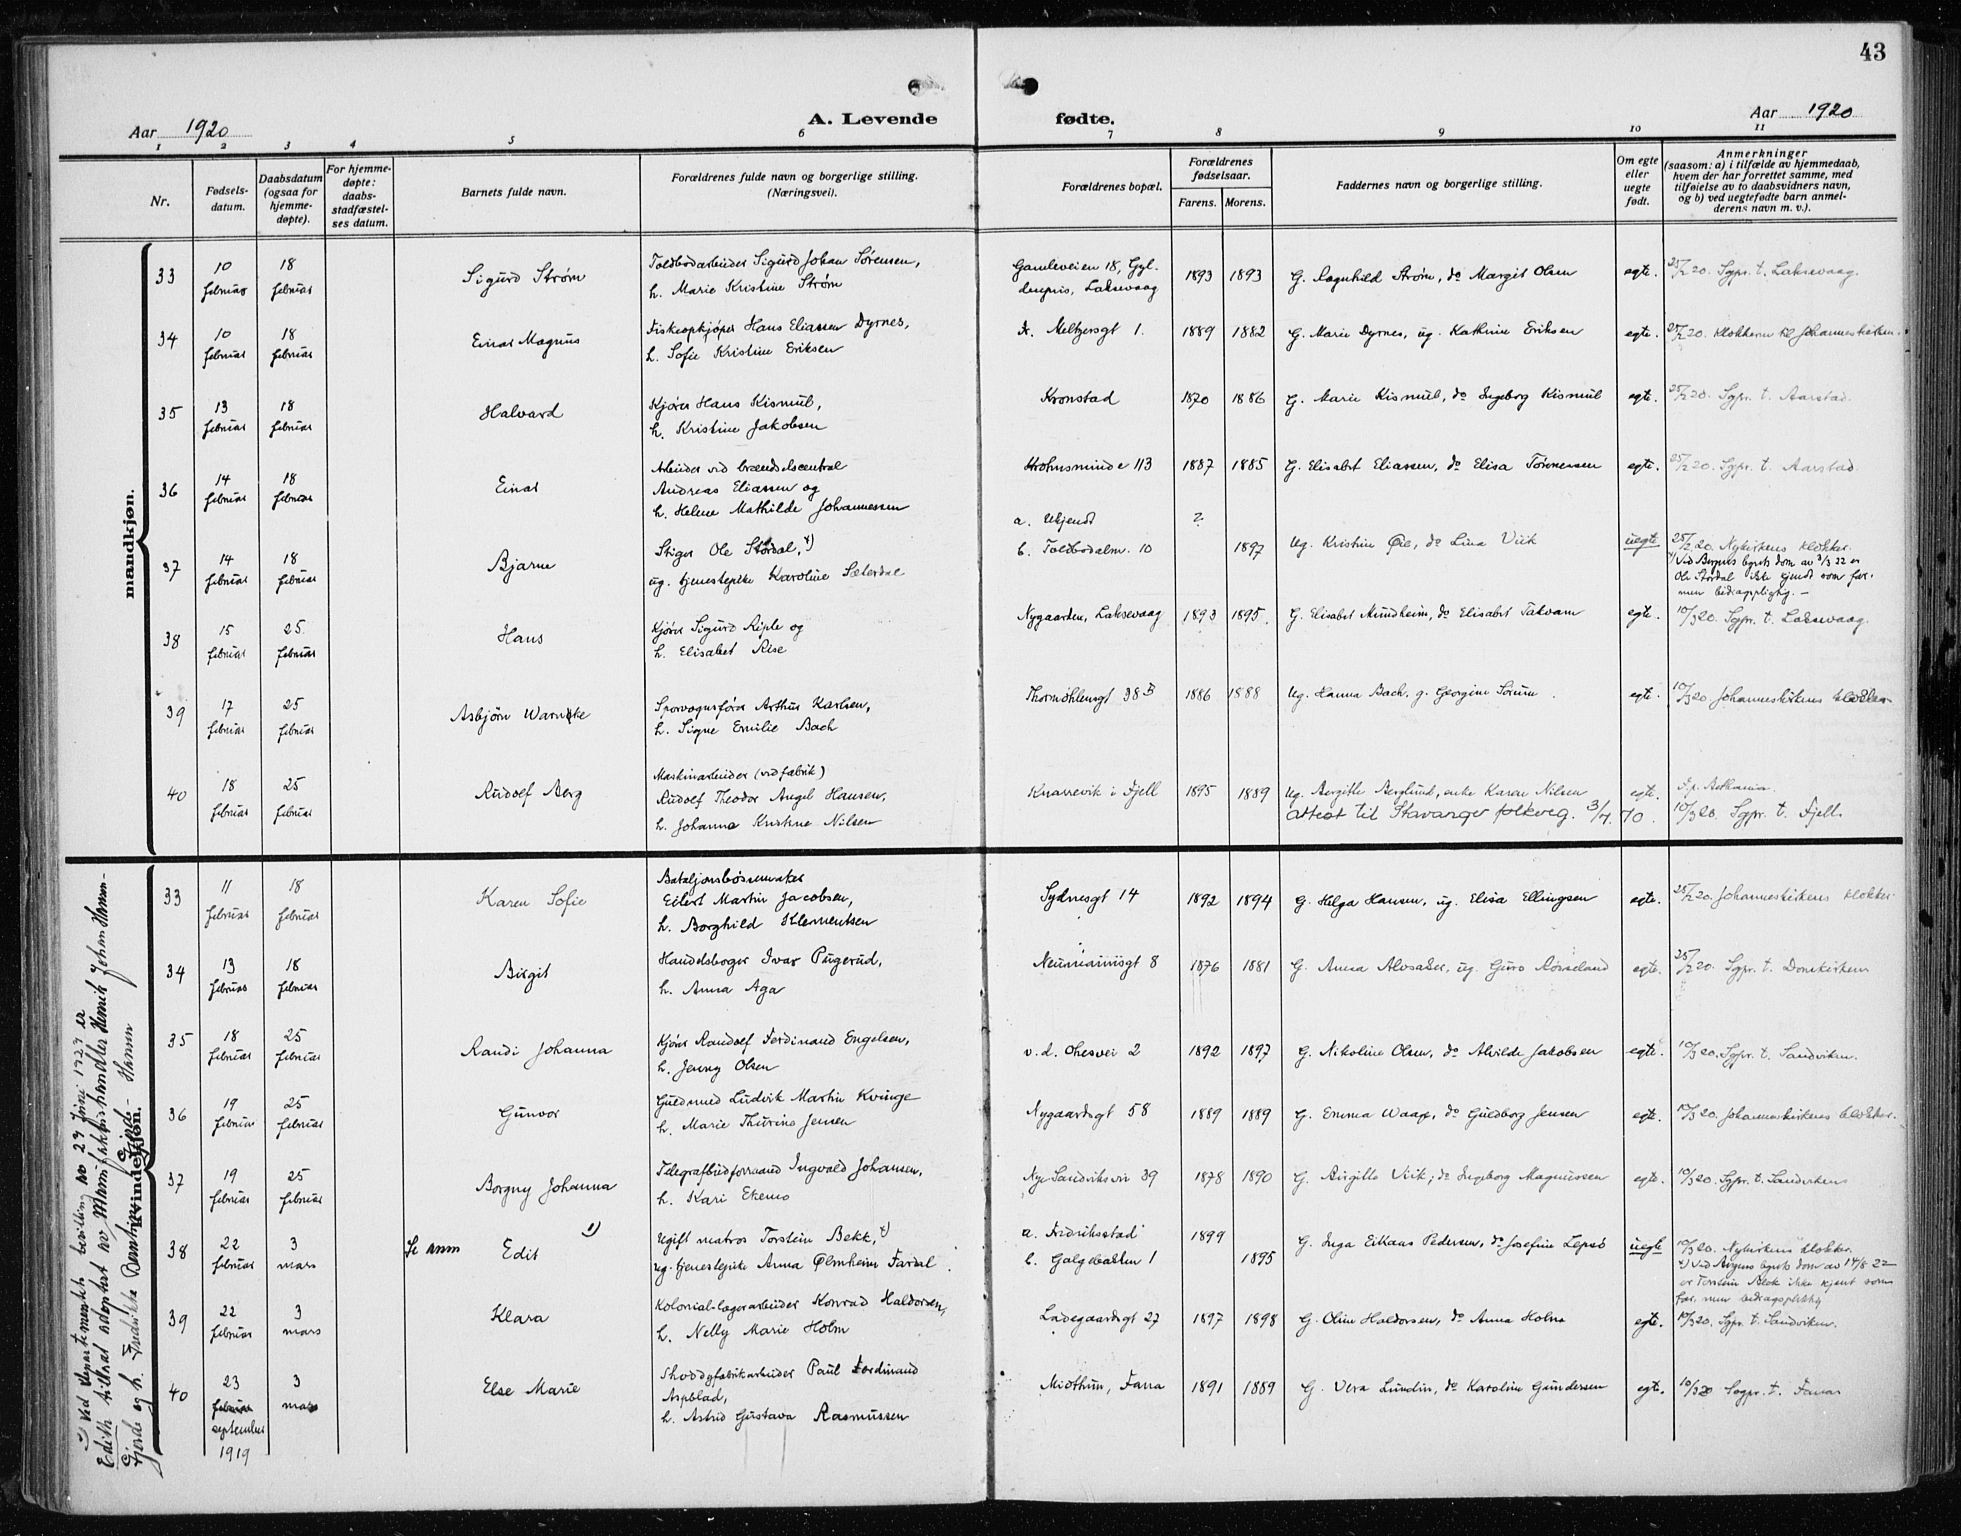 43
Aar 1920
A. Levende fødte.
Aar 1920
1 2 3 4 5 6 7 8 9 10 11
Nr.
Fødsels-
datum.
Daabsdatum
(ogsaa for
hjemme-
døpte).
For hjemme-
døpte:
daabs-
stadfæstel-
ses datum.
Barnets fulde navn.
Forældrenes fulde navn og borgerlige stilling.
(Næringsvei).
Forældrenes bopæl.
Forældrenes
fødselsaar.
Farens. Morens.
Faddernes navn og borgerlige stilling.
Om egte
eller
uegte
født.
Anmerkninger
(saasom: a) i tilfælde av hjemmedaab,
hvem der har forrettet samme, med
tilføielse av to daabsvidners navn,
og b) ved uegtefødte barn anmel-
derens navn m. v.).
mandkjøn.
33 10 februar 18 februar Sigurd Strøm
Toldbodarbeider Sigurd Johan Sørensen,
h. Marie Kristine Strøm
Gamleveien 18, Gyl-
denpris, Laksevaag
1893 1893 G. Ragnhild Strøm, do Margit Olsen egte. 25/2 20. Sgpr. t. Laksevaag.
34 10 februar 18 februar Einar Magnus
Fiskeopkjøper Hans Eliassen Dyrnes,
h. Sofie Kristine Eriksen
Meltzersgt 1. 1889 1882 G. Marie Dyrnes, ug. Kathrine Eriksen egte. 25/2 20. Klokkeren til Johanneskirken.
35 13 februar 18 februar Halvard
Kjører Hans Kismul,
h. Kristine Jakobsen
Kronstad 1870 1886 G. Marie Kismul, do Ingeborg Kismul egte. 25/2 20. Sgpr. t. Aarstad.
36 14 februar 18 februar Einar
Arbeider ved brændselscentral
Andreas Eliassen og
h. Helene Mathilde Johannessen
Krohnsminde 113 1887 1885 G. Elisabet Eliassen, do Elisa Tønnessen egte. 25/2 20. Sgpr. t. Aarstad.
37 14 februar 18 februar Bjarne
Stiger Ole Stordal, 1)
ug. tjenestepike Karoline Sæterdal
a. Ukjendt ?
b. Toldbodalm. 10 1897 Ug. Kristine Øie, do Lina Viik uegte 25/2 20. Nykirkens klokker.
1) Ved Bergens byrets dom av 3/3 22 er
Ole Stordal ikke kjendt som far.
men bidragspligtig. —
38 15 februar 25 februar Hans
Kjører Sigurd Riple og
h. Elisabet Rise
Nygaarden, Laksevaag 1893 1895. G. Elisabet Mundheim, do Elisabet Takvam egte. 10/3 20. Sgpr. t. Laksevaag.
39 17 februar 25 februar Asbjørn Warncke
Sporvognsfører Arthur Karlsen,
h. Signe Emilie Bach
Thormøhlensgt 38 B 1886 1888 Ug. Hanna Bach, g. Georgine Sørum. egte. 10/3 20 Johanneskirkens klokker.
40 18 februar 25 februar Rudolf Berg
Maskinarbeider (ved fabrik)
Rudolf Theodor Angel Hansen,
h. Johanna Kristine Nilsen
Knarrevik i Fjell 1895 1889 Ug. Bergitte Berglund, enke Karen Nilsen egte. F. p. Bethania.
Attest til Stavanger folkereg. 3/4 70. 10/3 20. Sgpr. t. Fjell.
kvindekjøn.
33 11 februar 18 februar Karen Sofie
Bataljonsbøssemaker
Eilert Martin Jacobsen,
h. Borghild Klementsen
Sydnesgt 14 1892 1894 G. Helga Hansen, ug. Elisa Ellingsen egte. 25/2 20. Johanneskirkens klokker
34 13 februar 18 februar Birgit
Handelsborger Ivar Pugerud,
h. Anna Aga
Neumannsgt 8 1876 1881 G. Anna Alvsaker, ug. Guro Rørseland egte. 25/2 20. Sgpr. t. Domkirken
35 18 februar 25 februar Randi Johanna
Kjører Randolf Ferdinand Engelsen,
h. Jenny Olsen
v. d. Ohesvei 2 1892 1897 G. Nikoline Olsen, do Alvilde Jakobsen egte. 10/3 20. Sgpr. t. Sandviken.
36 19 februar 25 februar Gunvor
Guldsmed Ludvik Martin Kvinge
h. Marie Thurine Jensen
Nygaardsgt 58 1889 1889 G. Emma Waage, do Guldborg Jensen egte. 10/3 20. Johanneskirkens klokker.
37 19 februar 25 februar Borgny Johanna
Telegrafbudformand Ingvald Johansen,
h. Kari Ekemo
Nye Sandviksvei 39 1878 1890 G. Birgitte Viik, do Ingeborg Magnussen egte. 10/3 20. Sgpr. t. Sandviken
38 22 februar 3 mars Se anm Edit 2)
Ugift matros Torstein Bekk, 1)
ug. tjenestepike Anna Ølmheim Fardal.
a. Fredriksstad 1899
b. Galgebakken 1 1895 G. Inga Pedersen, do Josefine Lepsø uegte 10/3 20. Nykirkens klokker.
1) Ved Bergens byrets dom av 14/8 22
er Torstein Bekk ikke kjent som
far, men bidragspliktig
39 22 februar 3 mars Klara
Kolonial-lagerarbeider Konrad Haldorsen,
h. Nelly Marie Holm
Ladegaardsgt 27 1897 1898 G. Oline Haldorsen, do Anna Holm egte. 10/3 20. Sgpr. t. Sandviken.
40 23 februar september 1919 3 mars Else Marie
Shoddyfabrikarbeider Paul Ferdinand
Aspblad,
h. Astrid Gustava Rasmussen
Midttun, Fana 1891 1889 G. Vera Lundin, do Karoline Gundersen egte. 10/3 20 Sogpr. t. Fana.
2) Ved departementets bevilling av 29 juni 1927 er
Edith tillat adoptert av Manufakturhandler Henrik Johan Hamm-
Gjerde og h. Fredrikke Gjerde-Hamm